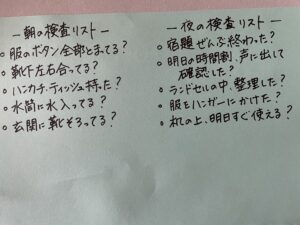 －朝の検査リスト－
○服のボタン全部とまってる?
○靴下左右合ってる?
○ハンカチ、ティッシュ持った?
○水筒に水入ってる?
○玄関に靴そろってる?
－夜の検査リスト－
○宿題ぜんぶ終わった?
○明日の時間割、声に出して
確認した?
○ランドセルの中、整理した?
○服をハンガーにかけた?
○机の上、明日すぐ使える?